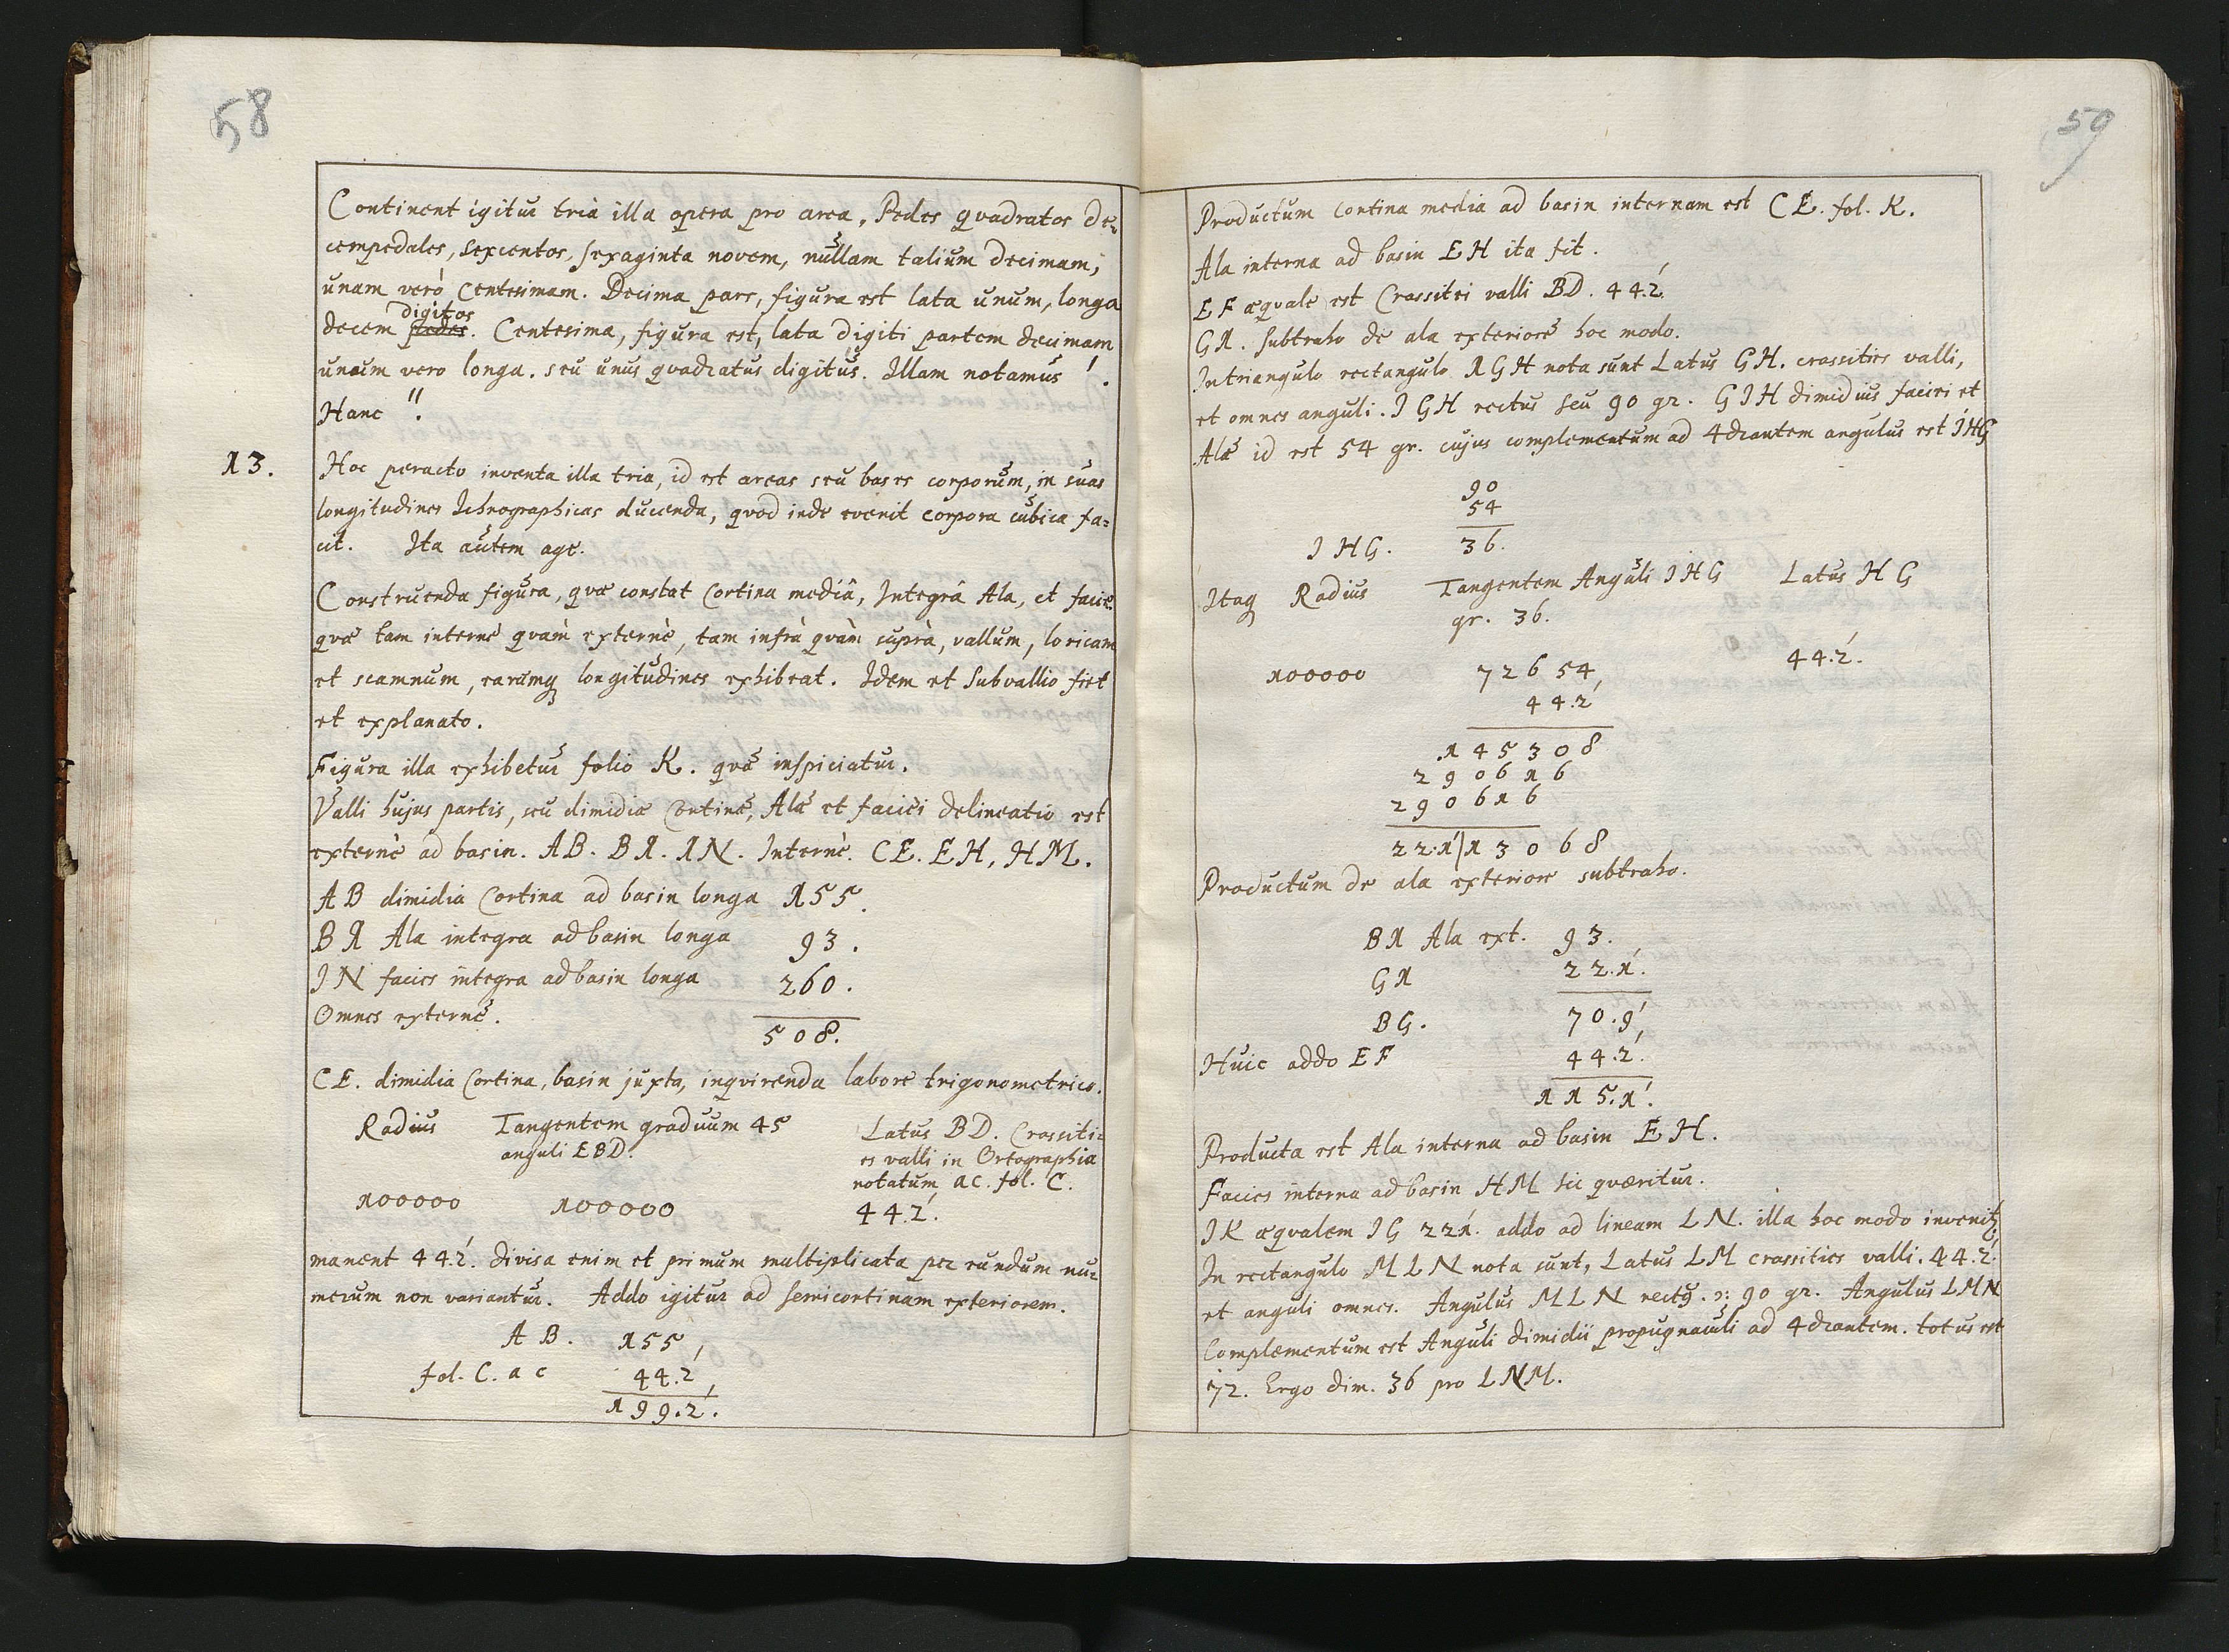 58
Continent igitur tria illa opera pro area, Pedes qvadratos de-
cempedales, sexcentos, sexaginta novem, nullam talium decimam,
unam verò Centesimam. Decima pars, figura est lata unum, longa
digitos
decem pedes. Centesima, figura est, lata digiti partem decimam
unum vero longa. seu unus qvadratus digitus. Illam notamus ′.
Hanc ″.
13. Hoc peracto inventa illa tria, id est areas seu bases corporum, in suas
longitudines Ichnographicas ducenda, qvod inde evenit corpora cubica fa=
cit. Ita autem age.
Construenda figura, qvæ constat Cortina mediâ, Integrâ Ala, et facie
qvæ tam internè qvàm externè, tam infrà qvàm suprà, vallum, loricam
et scamnum, earumq longitudines exhibeat. Idem et Subvallio fiet
et explanato.
Figura illa exhibetur folio K. qvæ inspiciatur.
Valli hujus partis, seu dimidiæ Cortinæ, Alæ et faciei delineatio est
externè ad basin. AB. BI. IN. Internè. CE. EH, HM.
AB dimidia Cortina ad basin longa 155.
BI Ala integra ad basin longa 93.
IN facies integra ad basin longa 260.
Omnes externè. 508.
CE. dimidia Cortina, basin juxta, inqvirenda labore trigonometrico.
Radius Tangentem graduum 45 Latus BD. Crassiti=
anguli EBD. es valli in Ortographia
notatum ac. fol. C.
100000 100000 44.2′.
manent 44.2′. divisa enim et primum multiplicata per eundum nu=
merum non variantur. Addo igitur ad semicortinam exteriorem.
AB. 155,
fol. C. a c 44.2′,
199.2′.
59
Productum Cortina media ad basin internam est CE. fol. K.
Ala interna ad basin EH ita fit.
EF æqvale est Crassitei valli BD. 44.2′.
GI. Subtraho de ala exteriore hoc modo.
In triangulo rectangulo IGH nota sunt Latus GH. crassities valli,
et omnes anguli. IGH rectus seu 90 gr. GIH dimidius faciei et
Alæ id est 54 gr. cujus complementum ad 4drantem angulus est IHG
90
54
IHG. 36.
Itaq Radius Tangentem Anguli IHG Latus HG
gr. 36.
100000 72654, 44.2′.
44.2′
145308
290616
290616
22.1′|13068
Productum de ala exteriore subtraho.
BI Ala ext. 93.
GI 22.1′.
BG. 70.9′
Huic addo EF 44.2′.
115.1′.
Producta est Ala interna ad basin EH.
Facies interna ad basin HM sic qværitur.
IK æqvalem IG 22.1′. addo ad lineam LN. illa hoc modo invenit
In rectangulo MLN nota sunt, Latus LM crassities valli. 44.2′.
et anguli omnes. Angulus MLN rectq. n: 90 gr. Angulus LMN
Complementum est Anguli dimidii propugnaculi ad 4drantem. totus est
72. Ergo dim. 36 pro LNM.